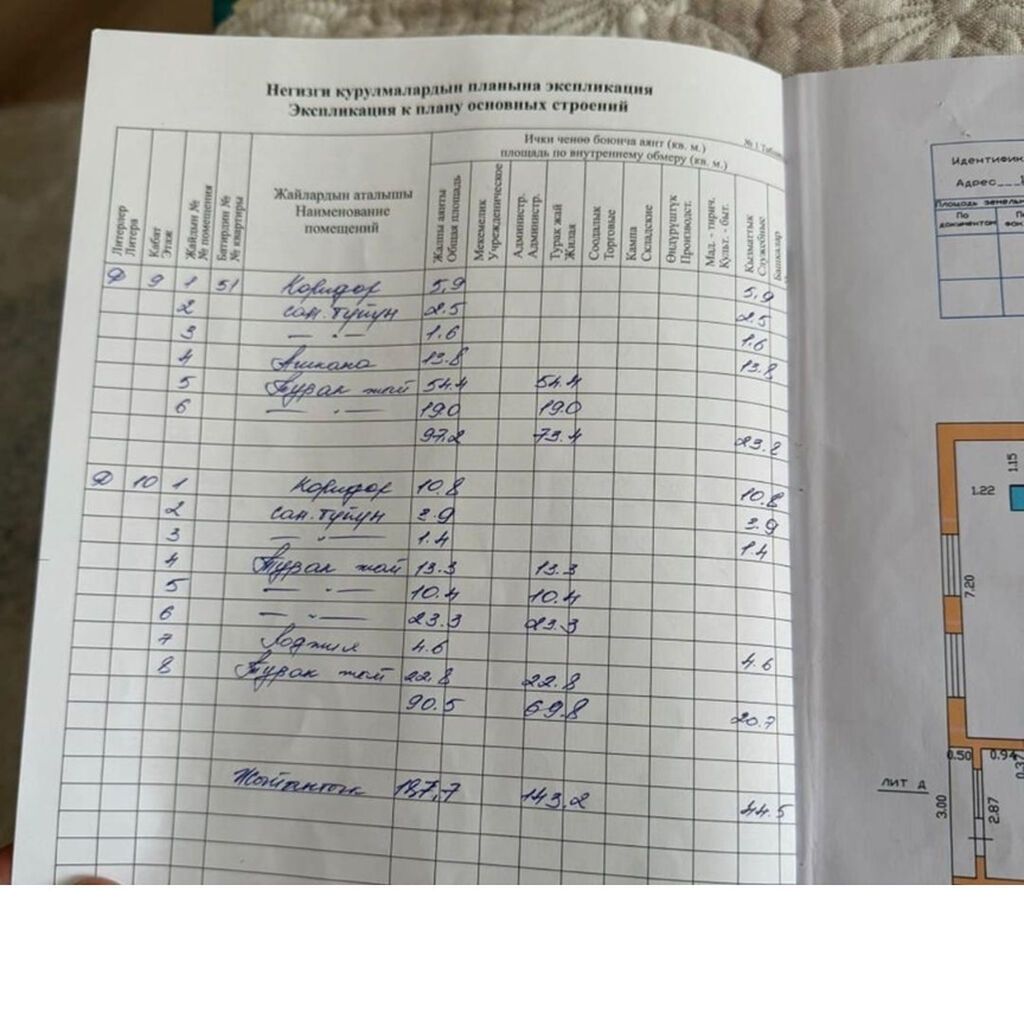 Негизги курулмалардын планына экспликация
Экспликация к плану основных строений
№ 1
Ички ченөө боюнча аянт (кв. м.)
площадь по внутреннему обмеру (кв. м.)
Литерлер Литера
Кабат Этаж
Жайдын № № помещения
Батирдин № № квартиры
Жайлардын аталышы
Наименование
помещений
Жалпы аянты Общая площадь
Мекемелик Учрежденическое
Администр. Администр.
Турак жай Жилая
Соодалык Торговые
Кампа Складские
Өндүрүштүк Производст.
Мад. - тирич. Культ. - быт.
Кызматтык Служебные
Башкалар
Д 9 1 51 Коридор 5,9 5,9
2 сан. түйүн 2.5 2.5
3 — " — 1.6 1.6
4 Ашкана 13.8 13.8
5 Турак жай 54.4 54.4
6 — " — 19.0 19.0
97.2 73.4 23.8
Д 10 1 Коридор 10.8 10.8
2 сан. түйүн 3.9 3.9
3 — " — 1.4 1.4
4 Турак жай 13.3 13.3
5 — " — 10.4 10.4
6 — " — 23.3 23.3
7 Лоджия 4.6 4.6
8 Турак жай 22.8 22.8
90.5 69.8 20.7
187,7 143,2 44.5
Адрес
По документам
1.22
1.15
7.20
0.50 0.94
0.37
ЛИТ Д
3.00
2.87